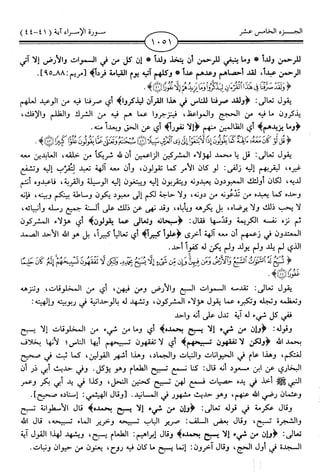 الجـــزء الخامس عشر
١٠٥١
سورة الإسراء آية (٤١-٤٤)
للرحمن ولداً * وما ينبغي للرحمن أن يتخذ ولداً * إن كل من في السموات والأرض إلا آتي
الرحمن عبداً، لقد أحصاهم وعدهم عداً * وكلهم آتيه يوم القيامة فرداً﴾ [مريم: ٨٨ـ٩٥].
﴿وَلَقَدْ صَرَّفْنَا فِي هَٰذَا الْقُرْآنِ لِيَذَّكَّرُوا وَمَا يَزِيدُهُمْ إِلَّا نُفُورًا﴾.
يقول تعالى: ﴿ولقد صرفنا للناس في هذا القرآن ليذكروا﴾ أي صرفنا فيه من الوعيد لعلهم
يذكرون ما فيه من الحجج والمواعظ، فينزجروا عما هم فيه من الشرك والظلم والإفك،
﴿وما يزيدهم﴾ أي الظالمين منهم ﴿إلا نفوراً﴾ أي عن الحق وبعداً منه.
يقول تعالى: قل يا محمد لهؤلاء المشركين الزاعمين أن لله شريكاً من خلقه، العابدين معه
غيره، ليقربهم إليه زلفى: لو كان الأمر كما تقولون، وأن معه آلهة تعبد لتقرب إليه وتشفع
لديه، لكان أولئك المعبودون يعبدونه ويتقربون إليه ويبتغون إليه الوسيلة والقربة، فاعبدوه أنتم
وحده كما يعبده من تدعونه من دونه، ولا حاجة لكم إلى معبود يكون وساطة بينكم وبينه، فإنه
لا يحب ذلك ولا يرضاه، بل يكرهه ويأباه، وقد نهى عن ذلك على ألسنة جميع رسله وأنبيائه،
ثم نزه نفسه الكريمة وقدَّسها فقال: ﴿سبحانه وتعالى عما يقولون﴾ أي هؤلاء المشركون
المعتدون في زعمهم أن معه آلهة أخرى ﴿علواً كبيراً﴾ أي تعالياً كبيراً، بل هو الله الأحد الصمد
الذي لم يلد ولم يولد ولم يكن له كفواً أحد.
يقول تعالى: تقدسه السموات السبع والأرض ومن فيهن، أي من المخلوقات، وتنزهه
وتعظمه وتجله وتكبره عما يقول هؤلاء المشركون، وتشهد له بالوحدانية في ربوبيته وإلهيته:
ففي كل شيء له آية تدل على أنه واحد
وقوله: ﴿وإن من شيء إلا يسبح بحمده﴾ أي وما من شيء من المخلوقات إلا يسبح
بحمد الله ﴿ولكن لا تفقهون تسبيحهم﴾ أي لا تفقهون تسبيحهم أيها الناس؛ لأنها بخلاف
لغتكم، وهذا عام في الحيوانات والنبات والجماد، وهذا أشهر القولين، كما ثبت في صحيح
البخاري عن ابن مسعود أنه قال: كنا نسمع تسبيح الطعام وهو يؤكل. وفي حديث أبي ذر أن
النبي ﷺ أخذ في يده حصيات فسمع لهن تسبيح كحنين النحل، وكذا في يد أبي بكر وعمر
وعثمان رضي الله عنهم، وهو حديث مشهور في المسانيد.
وقال عكرمة في قوله تعالى: ﴿وإن من شيء إلا يسبح بحمده﴾ قال الأسطوانة تسبح
والشجرة تسبح، وقال بعض السلف: صرير الباب تسبيحه وخرير الماء تسبيحه، قال الله
تعالى: ﴿وإن من شيء إلا يسبح بحمده﴾ وقال إبراهيم: الطعام يسبح، ويشهد لهذا القول آية
السجدة في أول الحج، وقال آخرون: إنما يسبح ما كان فيه روح، يعنون من حيوان ونبات.